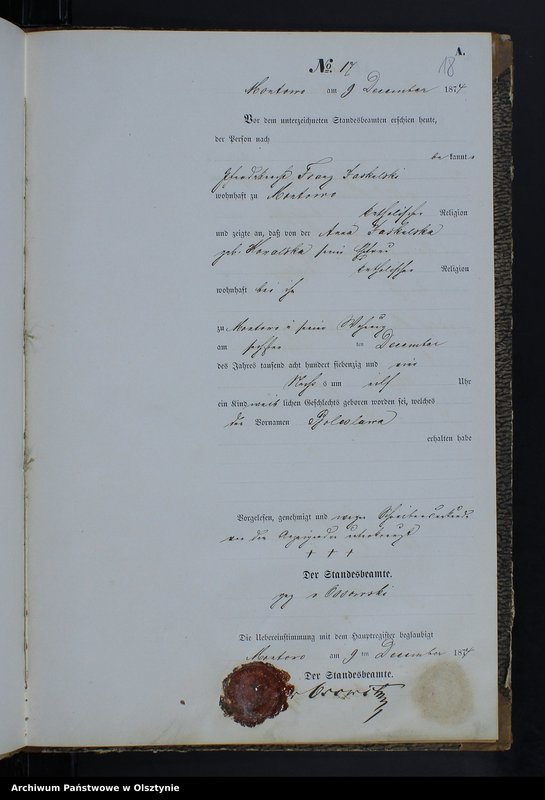 A.
18
No. 17
Montowo am 9 December 1874
Vor dem unterzeichneten Standesbeamten erschien heute,
der Person nach
be kannt
Franz Jaskolski
wohnhaft zu Montowo
katholischer Religion
und zeigte an, daß von der Anna Jaskolska
geb. seine Ehefrau
katholischer Religion
wohnhaft bei ihm
zu Montowo in seiner Wohnung
am sechsten ten December
des Jahres tausend acht hundert siebenzig und vier
Nachts um eilf Uhr
ein Kind weib lichen Geschlechts geboren worden sei, welches
die Vornamen Boleslawa
erhalten habe
Vorgelesen, genehmigt und wegen
von dem Anzeigenden unterkreuzt
+ + +
Der Standesbeamte.
gez v Ossowski
Die Uebereinstimmung mit dem Hauptregister beglaubigt
Montowo am 9 ten December 1874
Der Standesbeamte.
Archiwum Państwowe w Olsztynie